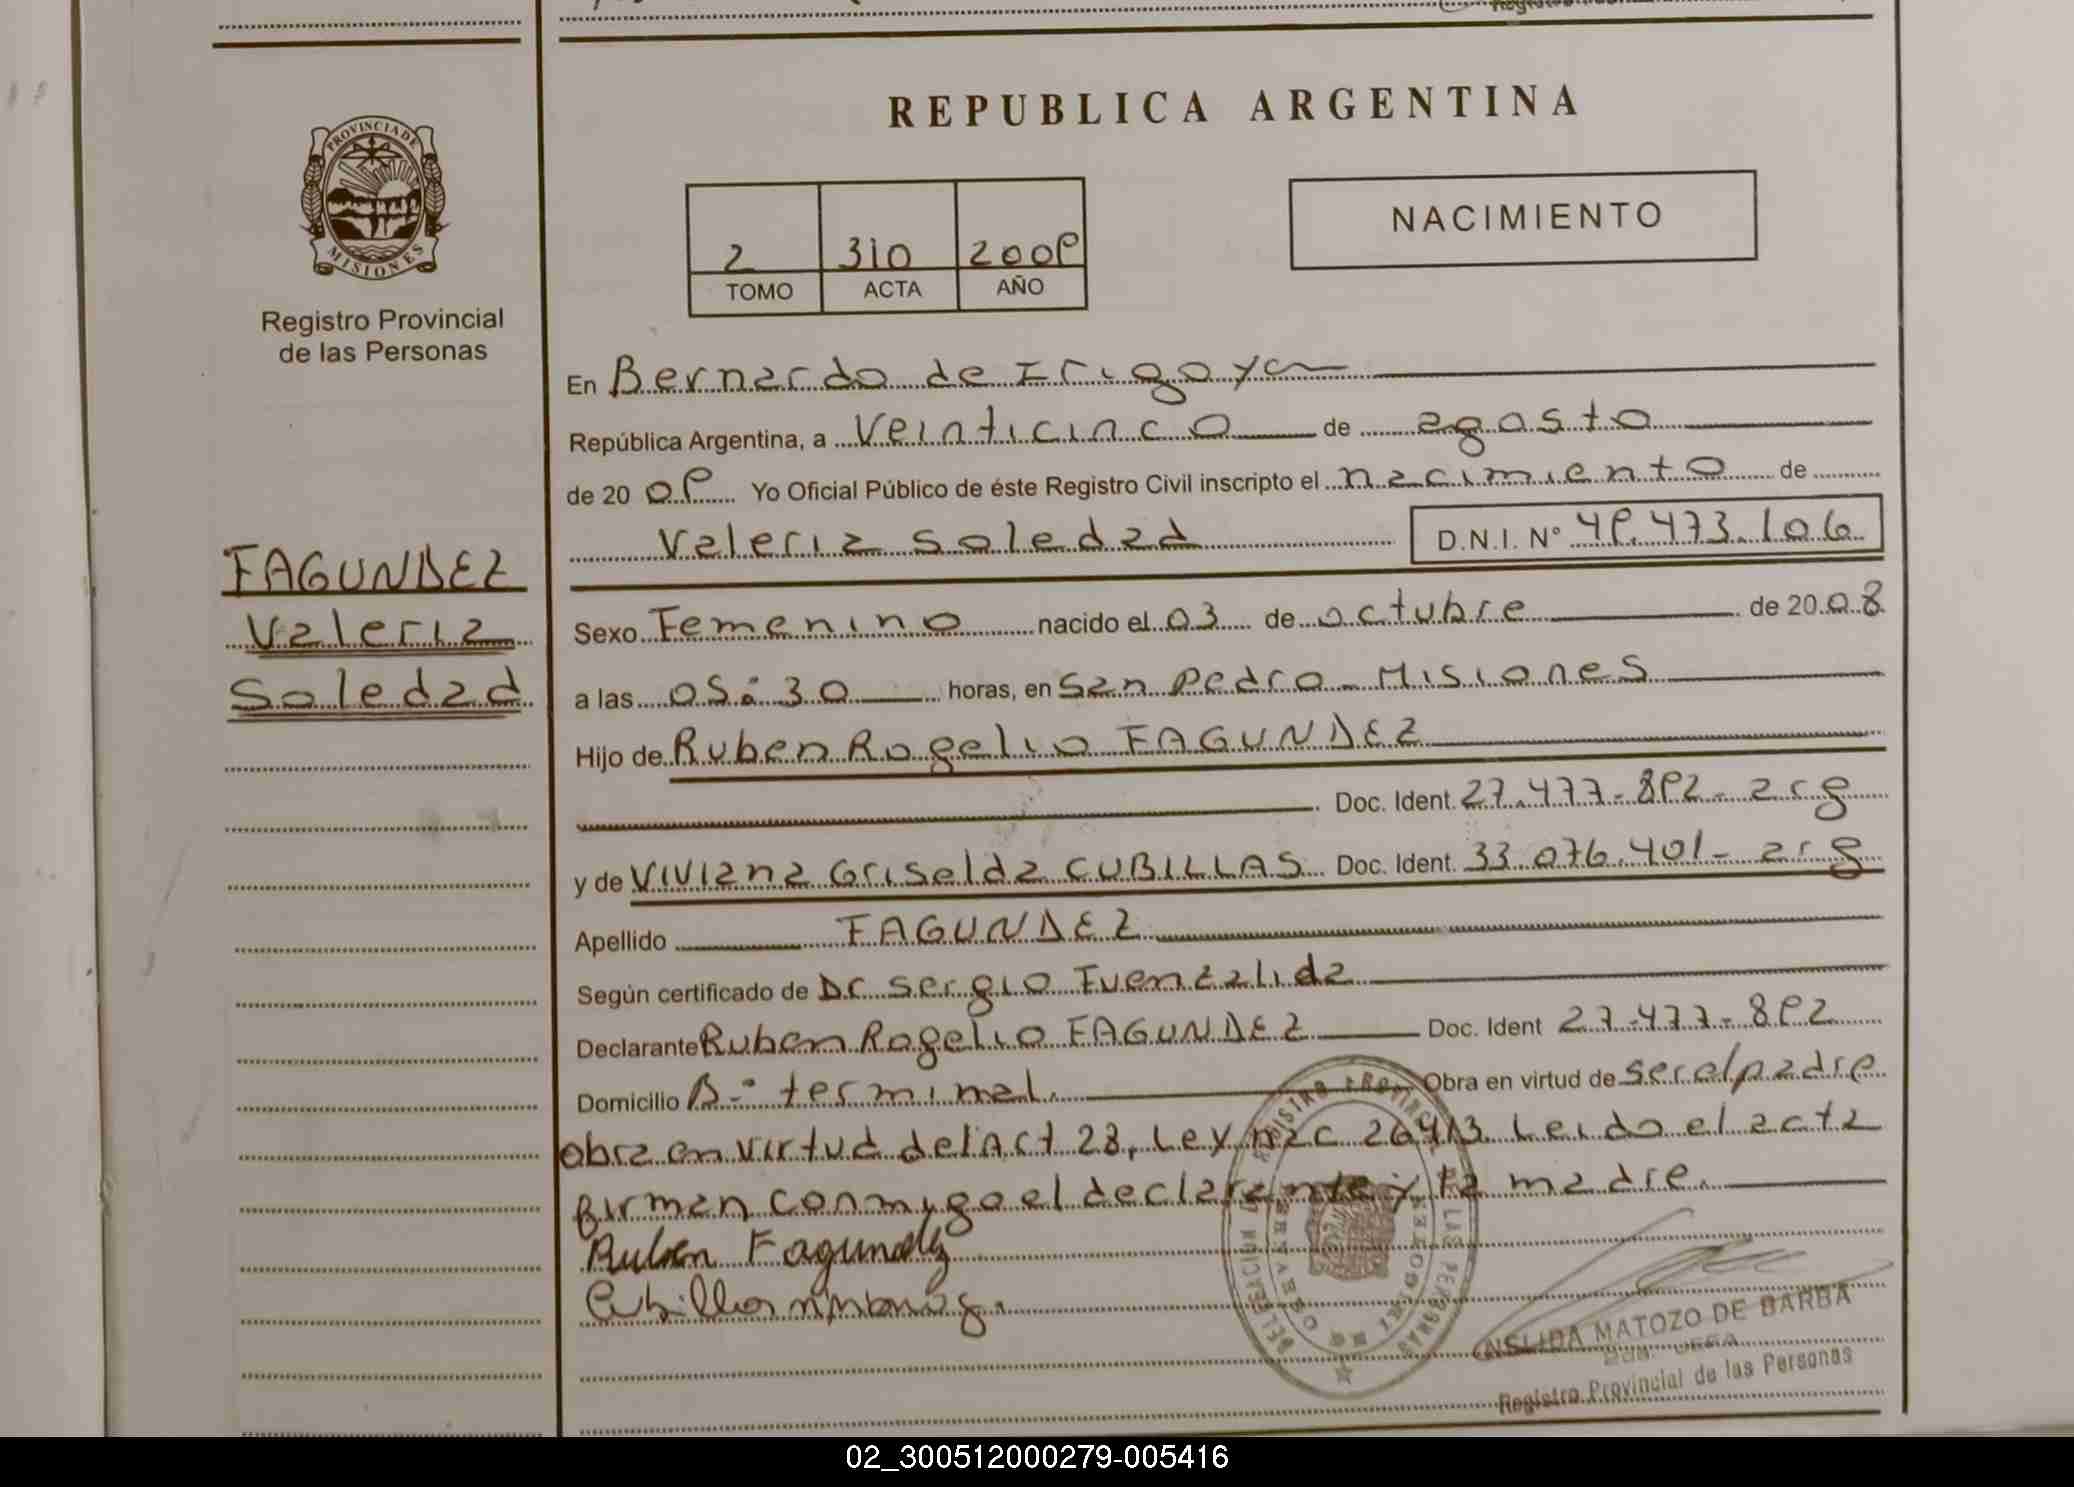 REPUBLICA ARGENTINA
PROVINCIA DE MISIONES
NACIMIENTO
2 310 2009
TOMO ACTA AÑO
Registro Provincial
de las Personas
En Bernardo de Irigoyen
República Argentina, a Veinticinco de agosto
de 20 09 Yo Oficial Público de éste Registro Civil inscripto el nacimiento de
Valeria Soledad D.N.I. Nº 49.473.106
FAGUNDEZ
Valeria
Soledad
Sexo Femenino nacido el 03 de octubre de 20 08
a las 05:30 horas, en San Pedro - Misiones
Hijo de Ruben Rogelio FAGUNDEZ
Doc. Ident. 27.477.892 - arg
y de Viviana Griselda CUBILLAS Doc. Ident. 33.076.401 - arg
Apellido FAGUNDEZ
Según certificado de Dr Sergio Fuenzalida
Declarante Ruben Rogelio FAGUNDEZ Doc. Ident 27.477.892
Domicilio B.º terminal. Obra en virtud de ser el padre
obra en virtud del Act 28, Ley nac 26413 Leido el acta
firman conmigo el declarante y la madre.
Ruben Fagundez
Cubillas
REGISTRO PROVINCIAL DE LAS PERSONAS
MATOZO DE BARBA
Registro Provincial de las Personas
02_300512000279-005416